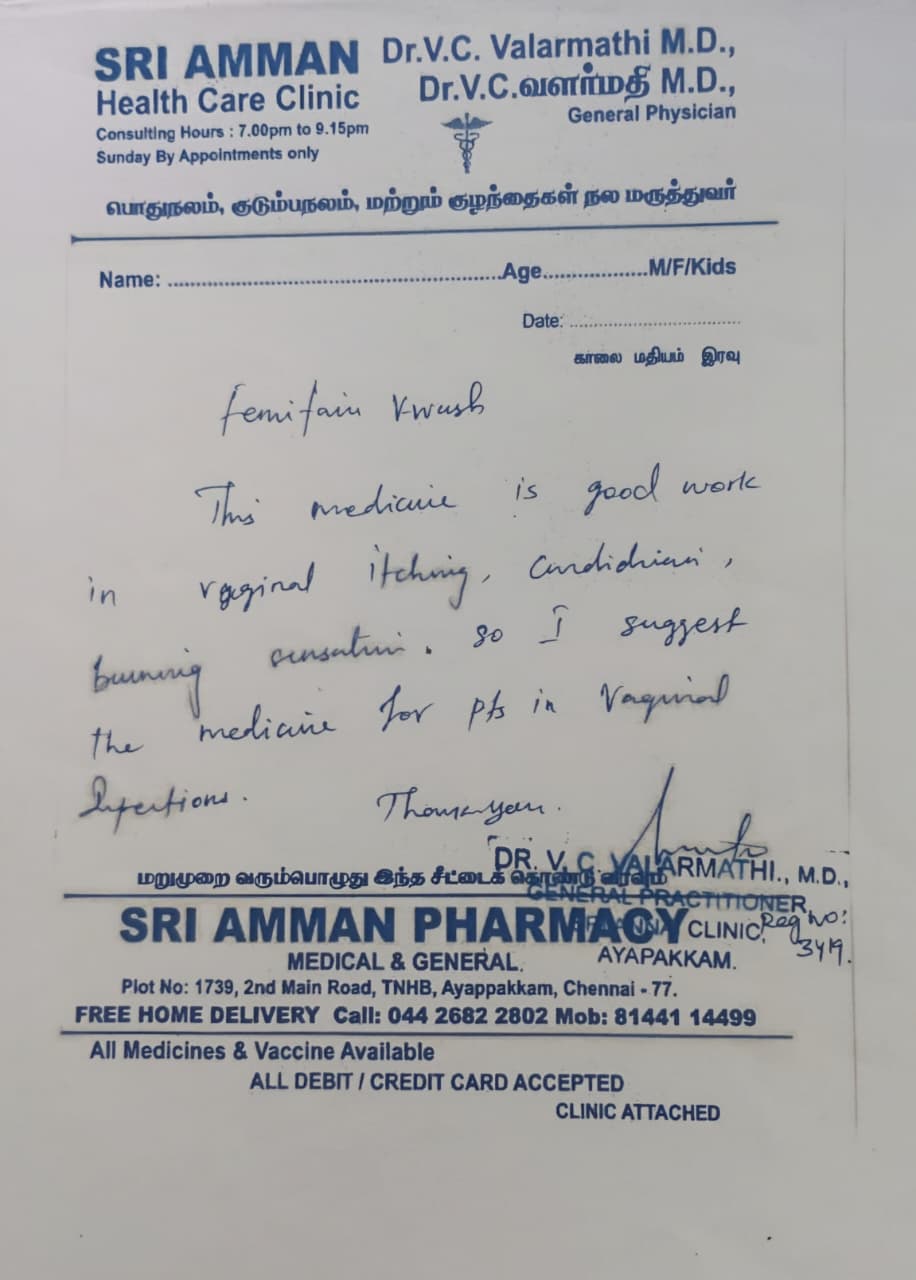 SRI AMMAN
Health Care Clinic
Consulting Hours : 7.00pm to 9.15pm
Sunday By Appointments only
Dr.V.C. Valarmathi M.D.,
Dr.V.C.வளர்மதி M.D.,
General Physician
பொதுநலம், குடும்பநலம், மற்றும் குழந்தைகள் நல மருத்துவர்
Name: ........................................................Age..................M/F/Kids
Date: ...................................
காலை மதியம் இரவு
femifain Vwash
This medicine is good work
in vaginal itching, candidiasis,
burning sensation. so I suggest
the medicine for pts in Vaginal
Infections.
DR. V. C. VALARMATHI., M.D.,
மறுமுறை வரும்பொழுது இந்த சீட்டைக் கொண்டு வரவும்
GENERAL PRACTITIONER
SRI AMMAN PHARMACY
CLINIC,
Reg No:
MEDICAL & GENERAL.
AYAPAKKAM.
Plot No: 1739, 2nd Main Road, TNHB, Ayappakkam, Chennai - 77.
FREE HOME DELIVERY Call: 044 2682 2802 Mob: 81441 14499
All Medicines & Vaccine Available
ALL DEBIT / CREDIT CARD ACCEPTED
CLINIC ATTACHED